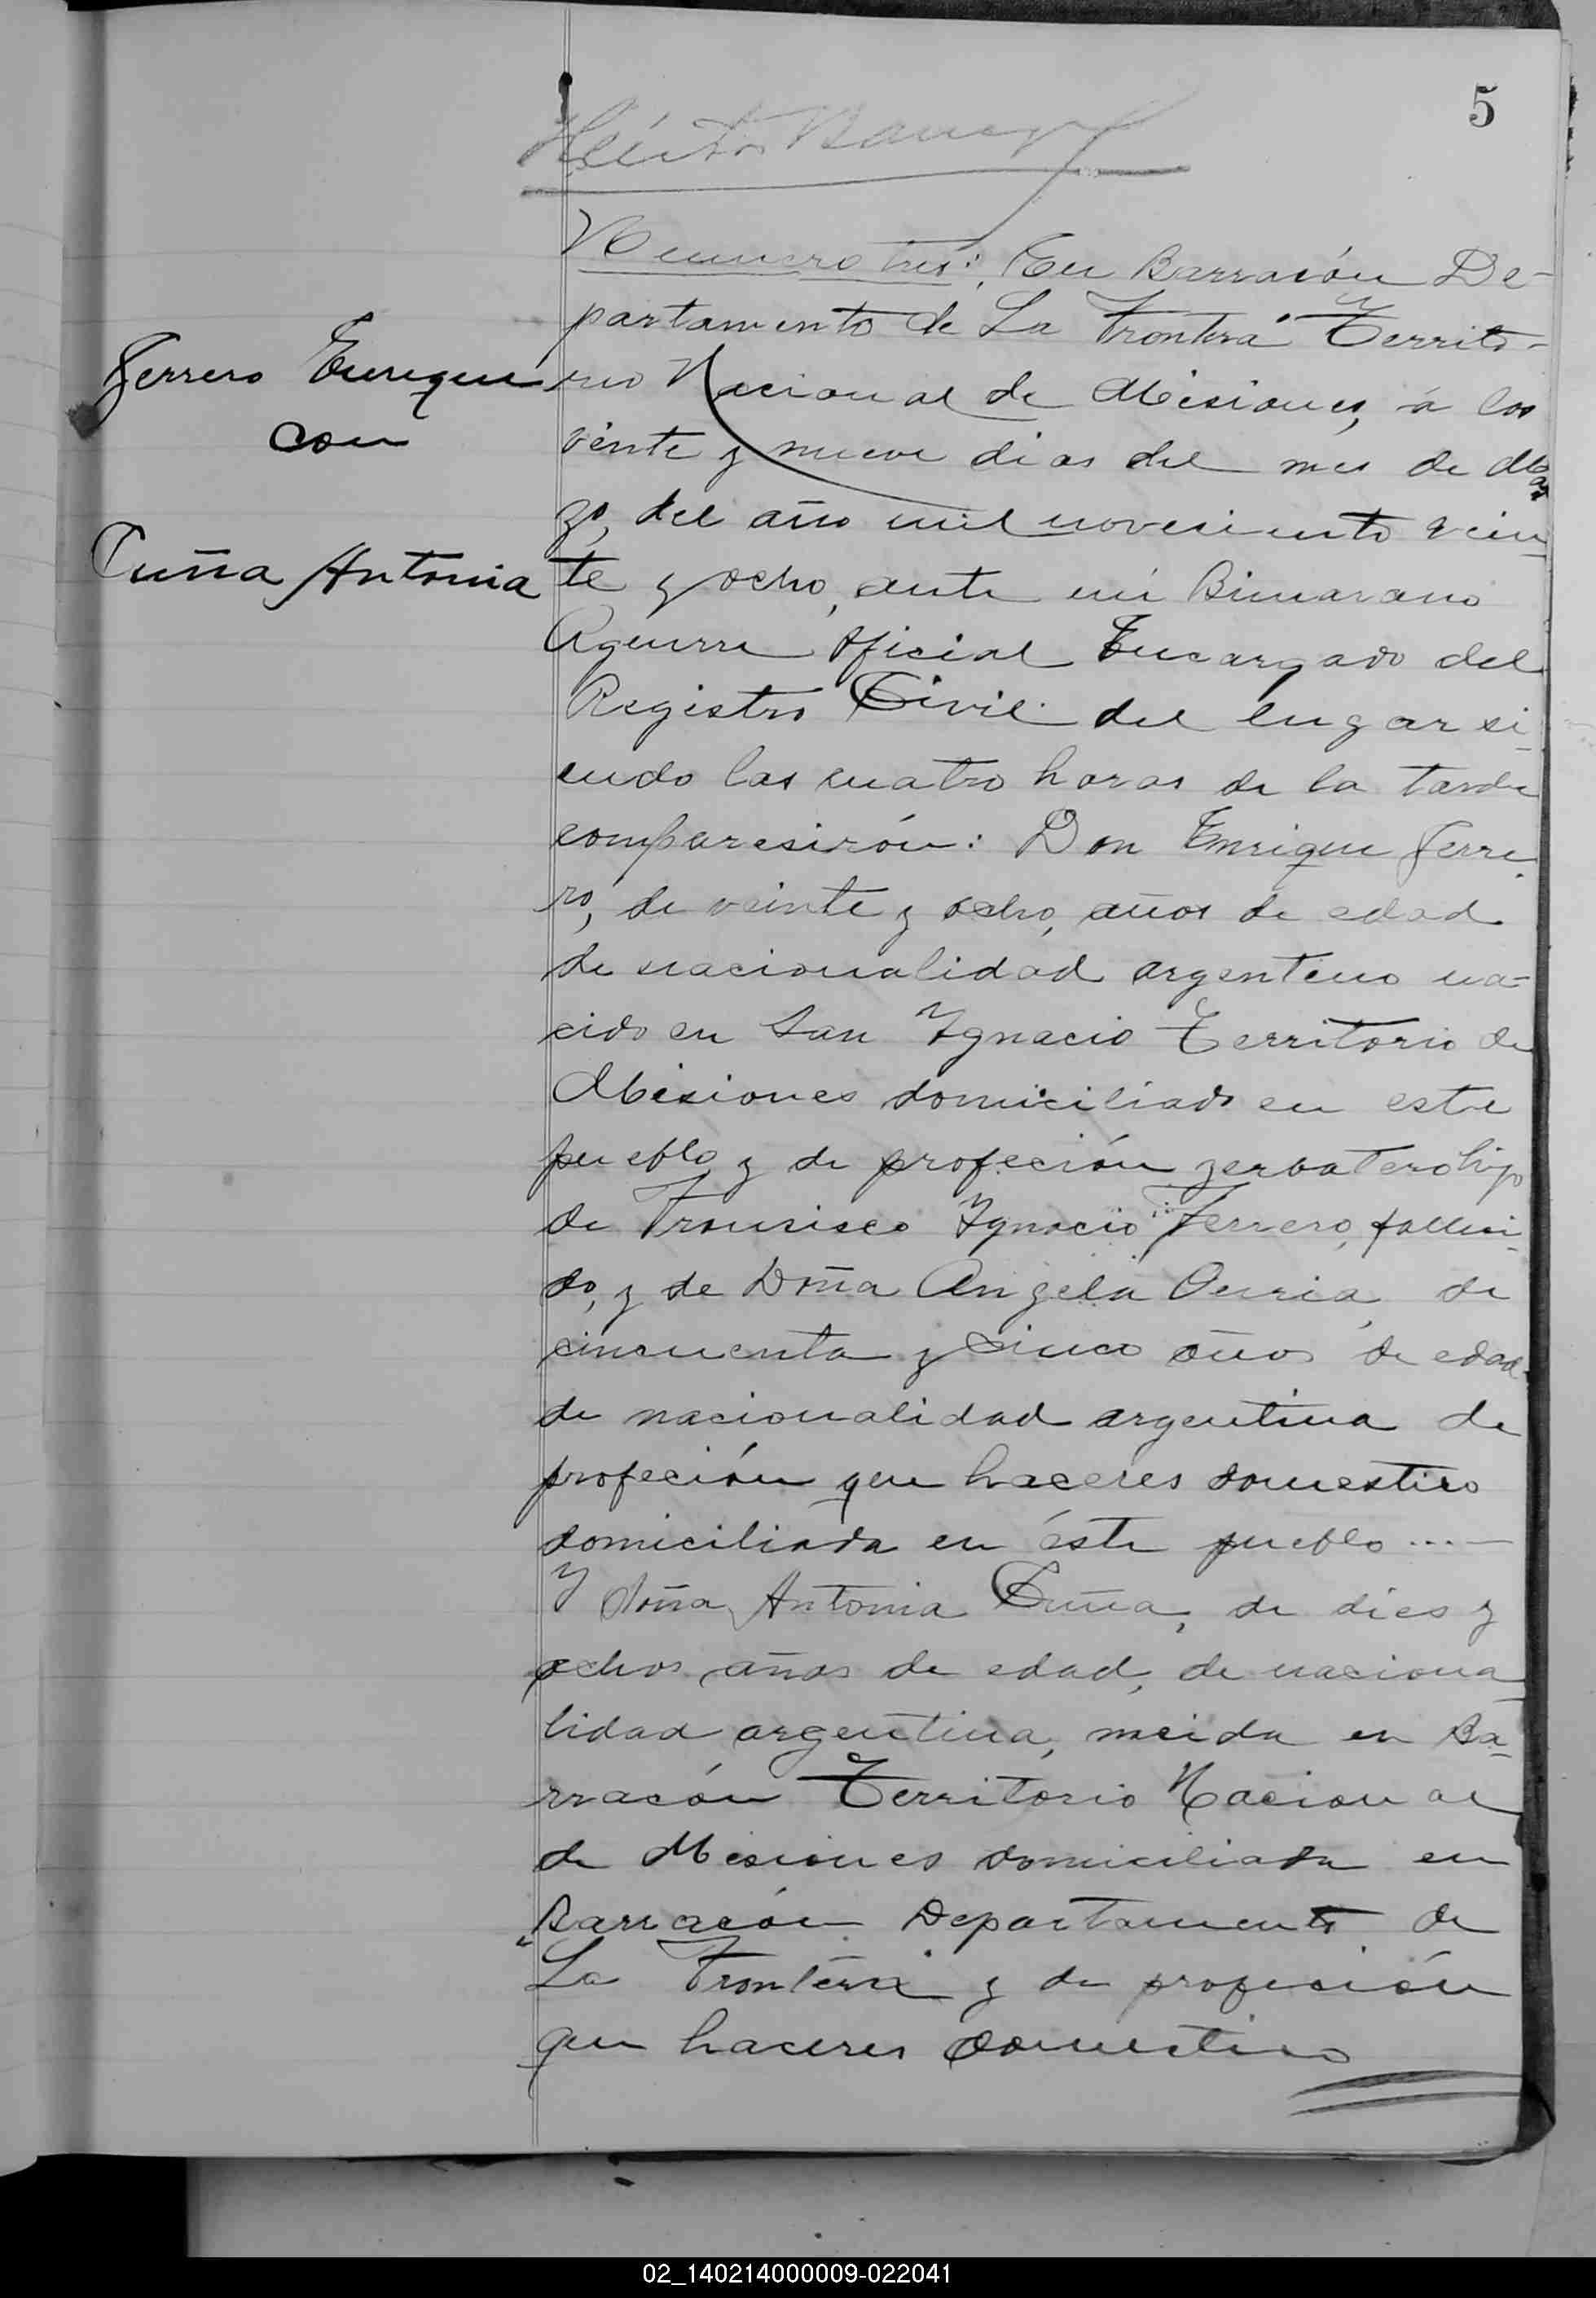 5
Héctor
Numero tres: En Barracón De-
partamento de La Frontera" Territo-
Ferrero Enrique
rio Nacional de Misiones, á los
con
veinte y nueve dias del mes de Mar
zo, del año mil novesiento vein-
Cuña Antonia
te y ocho, ante mi
Aguirre Oficial Encargado del
Registro Civil del lugar si-
endo las cuatro horas de la tarde
comparesirón: Don Enrique Ferre-
ro, de veinte y ocho, años de edad
de nacionalidad argentino na-
cido en San Ygnacio Territorio de
Misiones domiciliado en este
pueblo y de profeción yerbatero hijo
de Francisco Ygnacio Ferrero, falleci-
do, y de Doña Angela de
cincuenta y sinco años de edad
de nacionalidad argentina de
profeción que haceres domestico
domiciliada en éste pueblo ...—
Y doña Antonia Cuña, de dies y
ochos años de edad, de naciona-
lidad argentina, nacida en Ba-
rracón Territorio Nacional
de Misiones domiciliada en
Barracón Departamento de
"La Frontera" y de profeción
que haceres domestico
02_140214000009-022041